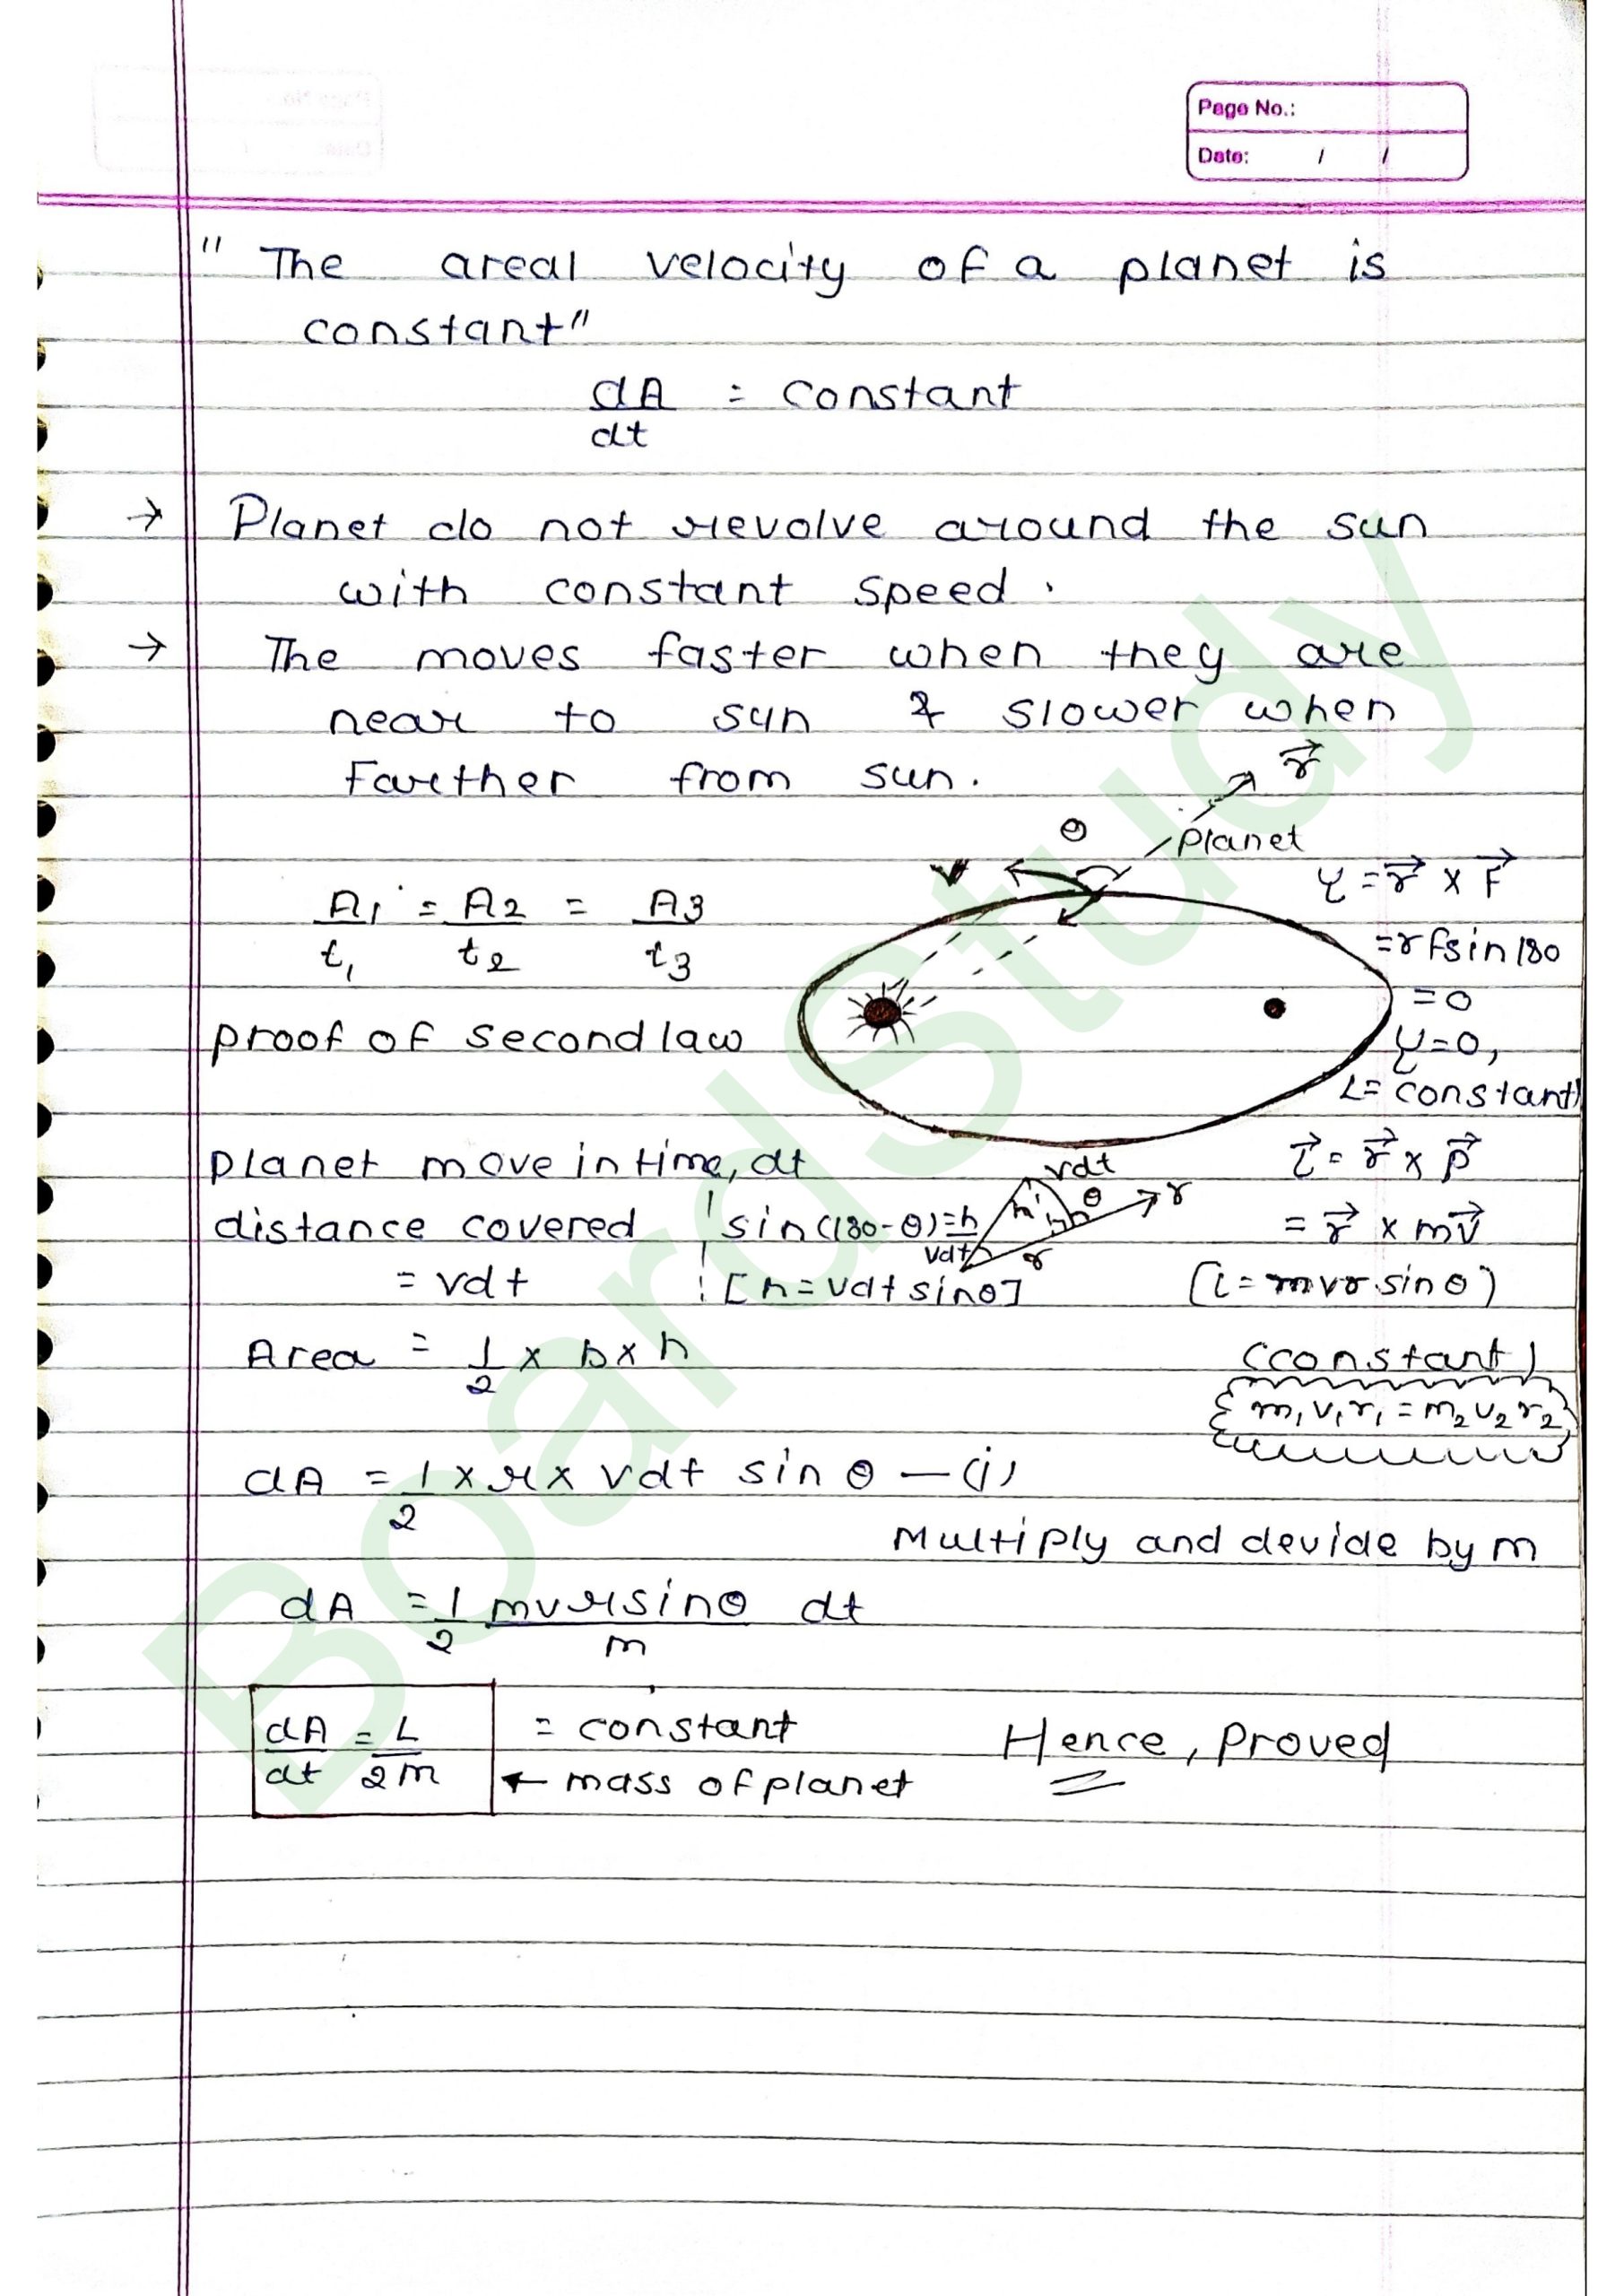 Page No.:
Date: / /
" The areal velocity of a planet is
constant"
dA/dt = constant
→ Planet do not revolve around the sun
with constant speed.
→ The moves faster when they are
near to sun & slower when
Farther from sun.
r⃗
θ
Planet
v
A1/t1 = A2/t2 = A3/t3
τ = r⃗ × F⃗
= r F sin 180
= 0
τ = 0,
L = constant
proof of second law
planet move in time, dt
distance covered
= vdt
vdt
h
θ
r
r
sin(180-θ) = h/vdt
[h = vdt sinθ]
L⃗ = r⃗ × p⃗
= r⃗ × mv⃗
[L = mvr sinθ)
(constant)
m1v1r1 = m2v2r2
Area = 1/2 × b × h
dA = 1/2 × r × vdt sin θ — (i)
Multiply and devide by m
dA = 1/2 mvr sinθ/m dt
dA/dt = L/2m = constant
← mass of planet
Hence, Proved
BoardStudy